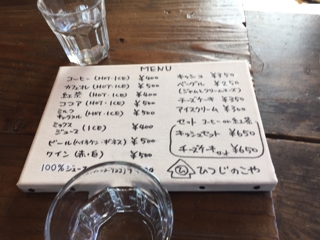 MENU
コーヒー (HOT・ICE) ¥400
カフェオレ (HOT・ICE) ¥500
紅茶 (HOT・ICE) ¥400
ココア (HOT・ICE) ¥500
ミルク (HOT・ICE) ¥500
ミックスジュース (ICE) ¥400
ビール (ハイネケン・ギネス) ¥500
ワイン (赤・白)
100%ジュース
キッシュ ¥350
ベーグル ¥250
(ジャム&クリームチーズ)
チーズケーキ ¥350
アイスクリーム ¥300
セット コーヒー or 紅茶
キッシュセット ¥650
チーズケーキセット ¥650
ひつじのこや